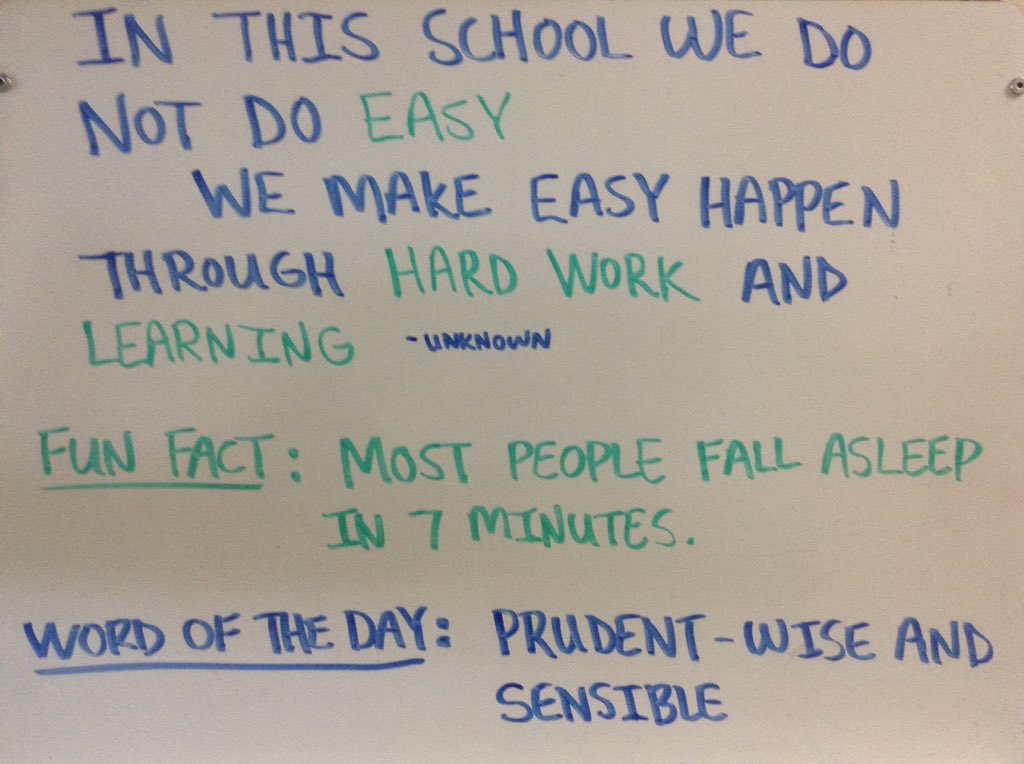 IN THIS SCHOOL WE DO
NOT DO EASY
WE MAKE EASY HAPPEN
THROUGH HARD WORK AND
LEARNING -UNKNOWN
FUN FACT: MOST PEOPLE FALL ASLEEP
IN 7 MINUTES.
WORD OF THE DAY: PRUDENT-WISE AND
SENSIBLE